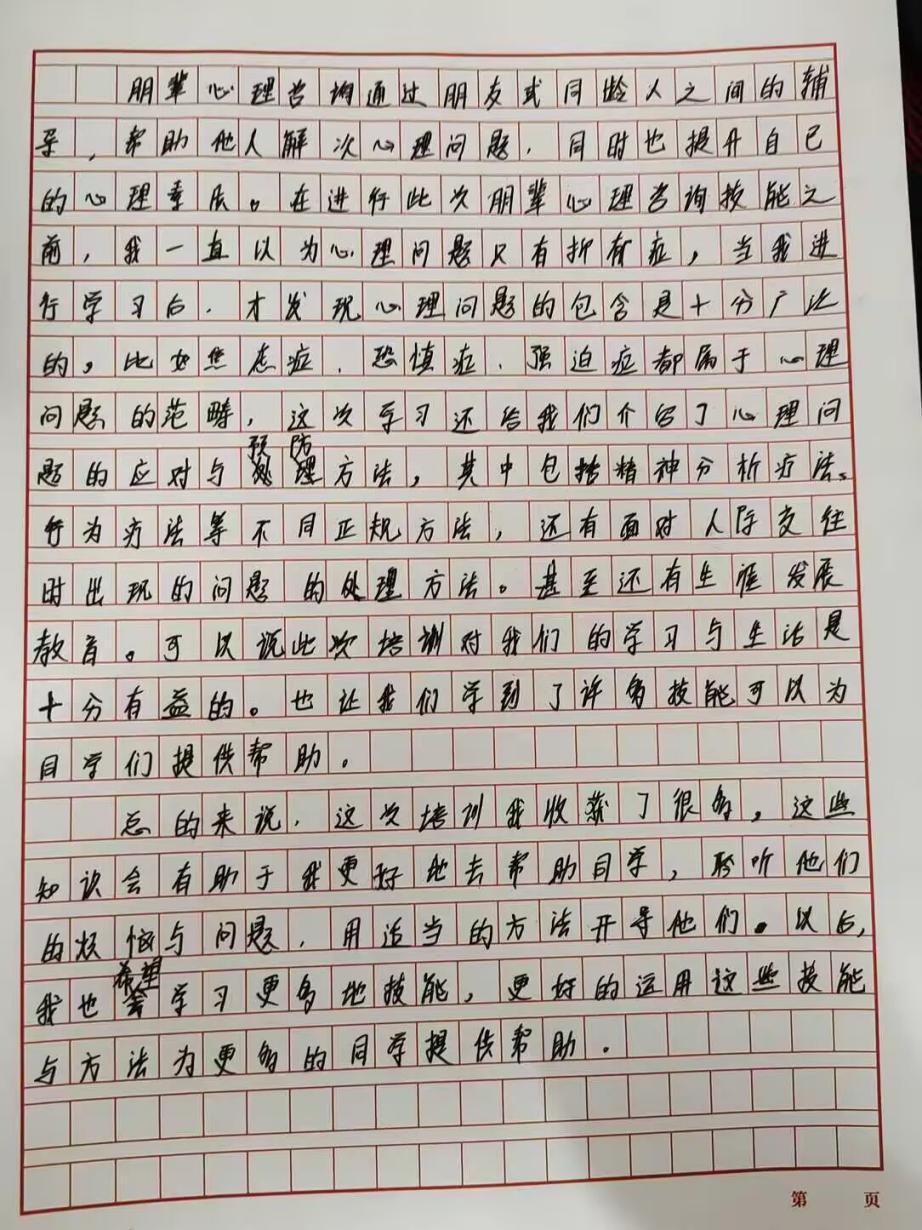 朋辈心理咨询通过朋友或同龄人之间的辅
导，帮助他人解决心理问题，同时也提升自己
的心理素质。在进行此次朋辈心理咨询技能之
前，我一直以为心理问题只有抑郁症，当我进
行学习后，才发现心理问题的包含是十分广泛
的。比如焦虑症、恐惧症、强迫症都属于心理
问题的范畴，这次学习还给我们介绍了心理问
预防
题的应对与处理方法，其中包括精神分析疗法、
行为疗法等不同正规方法，还有面对人际交往
时出现的问题的处理方法。甚至还有生涯发展
教育。可以说此次培训对我们的学习与生活是
十分有益的。也让我们学到了许多技能可以为
同学们提供帮助。
总的来说，这次培训我收获了很多，这些
知识会有助于我更好地去帮助同学，聆听他们
的烦恼与问题，用适当的方法开导他们。以后，
希望
我也会学习更多地技能，更好的运用这些技能
与方法为更多的同学提供帮助。
第 页